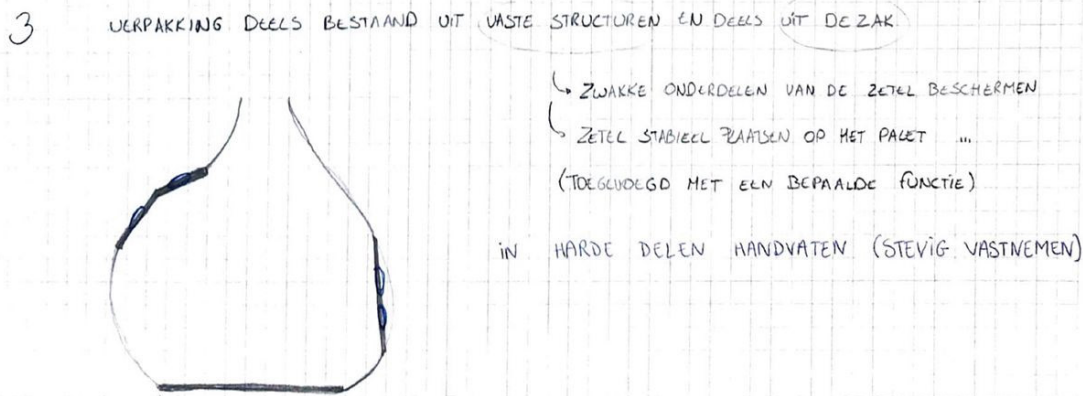 3 VERPAKKING DEELS BESTAAND UIT VASTE STRUCTUREN EN DEELS UIT DE ZAK
↳ ZWAKKE ONDERDELEN VAN DE ZETEL BESCHERMEN
↳ ZETEL STABIEL PLAATSEN OP HET PALET ...
(TOEGEVOEGD MET EEN BEPAALDE FUNCTIE)
IN HARDE DELEN HANDVATEN (STEVIG VASTNEMEN)